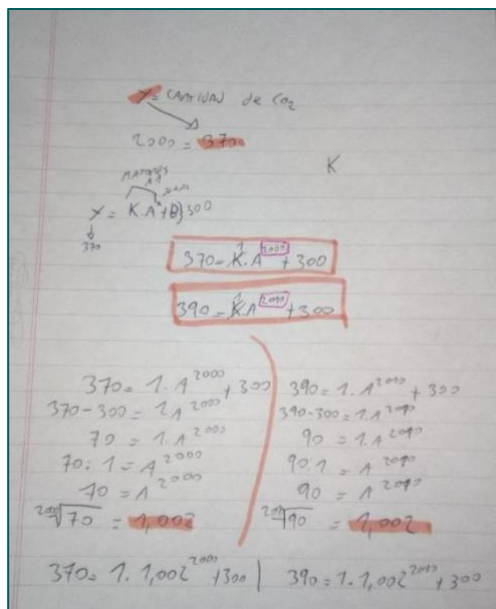 Y = CANTIDAD de CO2
2000 = 370
K
MAYOR
X = K.A + B} 300
370
370 = K.A^2000 + 300
390 = K.A^2010 + 300
370 = 1.A^2000 + 300
370-300 = 1.A^2000
70 = 1.A^2000
70:1 = A^2000
70 = A^2000
2000√70 = 1,002
390 = 1.A^2010 + 300
390-300 = 1.A^2010
90 = 1.A^2010
90:1 = A^2010
90 = A^2010
2010√90 = 1,002
370 = 1.1,002^2000 + 300 | 390 = 1.1,002^2010 + 300